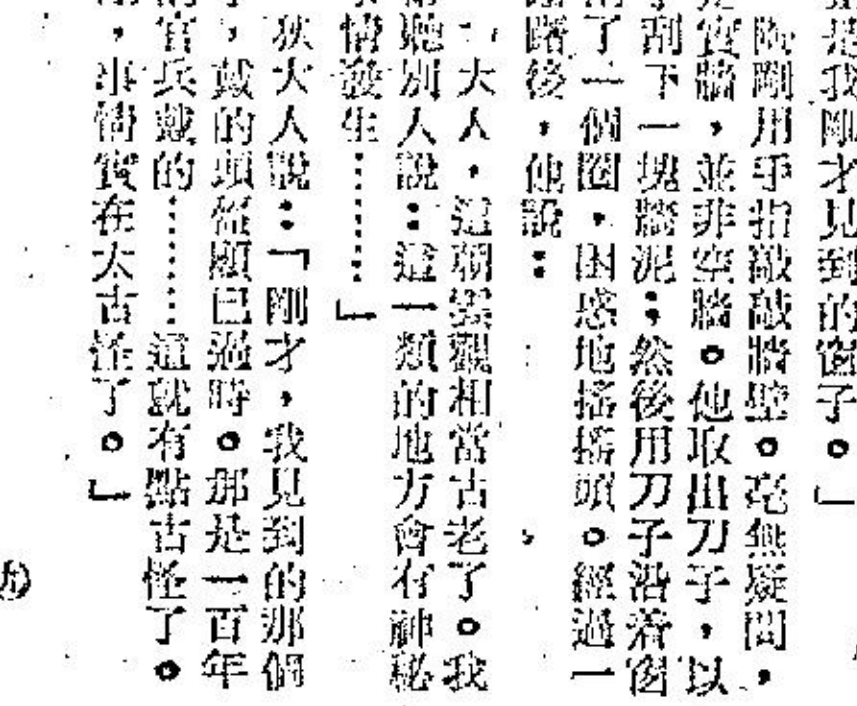 是我剛才見到的窗子。」
陶剛用手指敲敲牆壁。毫無疑問，
實牆，並非空牆。他取出刀子，以
刮下一塊牆泥；然後用刀子沿着窗
了一個圈，困惑地搖搖頭。經過一
躇後，他說：
「大人，這朝雲觀相當古老了。我
聽別人說：這一類的地方會有神秘
情發生……」
狄大人說：「剛才，我見到的那個
，戴的頭盔顯已過時。那是一百年
官兵戴的……這就有點古怪了。
，事情實在太古怪了。」